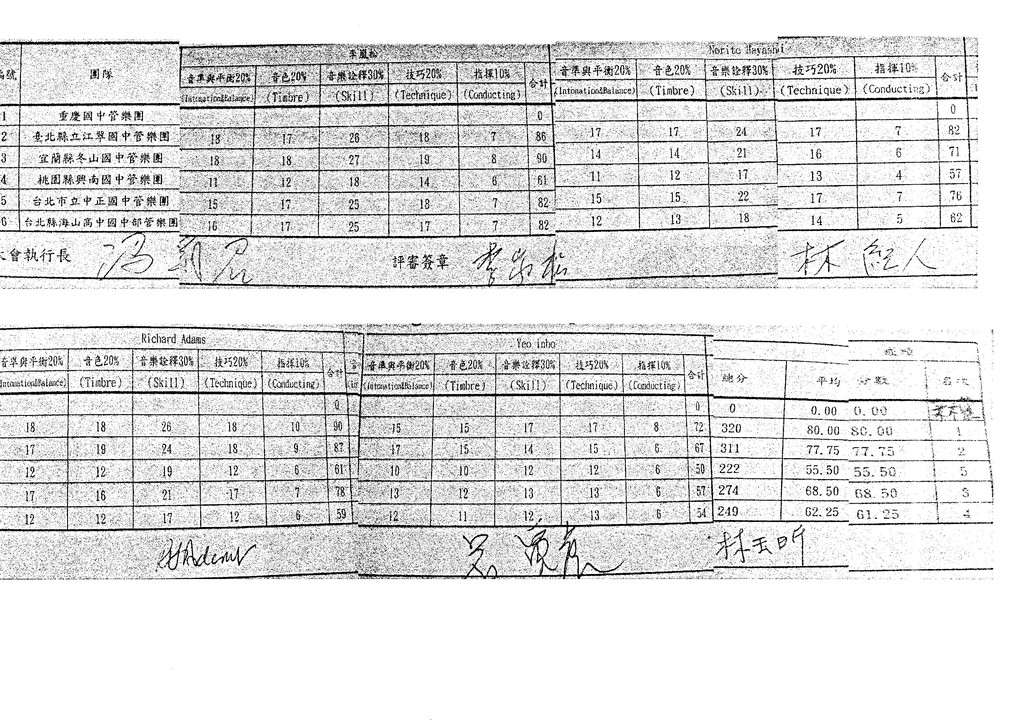 編號 團隊 李鳳松 Norito Hayashi
音準與平衡20% 音色20% 音樂詮釋30% 技巧20% 指揮10% 合計 音準與平衡20% 音色20% 音樂詮釋30% 技巧20% 指揮10% 合計
(Intonation&Balance) (Timbre) (Skill) (Technique) (Conducting) (Intonation&Balance) (Timbre) (Skill) (Technique) (Conducting)
1 重慶國中管樂團 0 0
2 臺北縣立江翠國中管樂團 18 17 26 18 7 86 17 17 24 17 7 82
3 宜蘭縣冬山國中管樂團 18 18 27 19 8 90 14 14 21 16 6 71
4 桃園縣興南國中管樂團 11 12 18 14 6 61 11 12 17 13 4 57
5 台北市立中正國中管樂團 15 17 25 18 7 82 15 15 22 17 7 76
6 台北縣海山高中國中部管樂團 16 17 25 17 7 82 12 13 18 14 5 62
會執行長 評審簽章 林 紀人
Richard Adams Yeo inho 成績
音準與平衡20% 音色20% 音樂詮釋30% 技巧20% 指揮10% 合計 音準與平衡20% 音色20% 音樂詮釋30% 技巧20% 指揮10% 合計 總分 平均 分數 名次
(Intonation&Balance) (Timbre) (Skill) (Technique) (Conducting) (Intonation&Balance) (Timbre) (Skill) (Technique) (Conducting)
0 0 0 0.00 0.00
18 18 26 18 10 90 15 15 17 17 8 72 320 80.00 80.00 1
17 19 24 18 9 87 17 15 14 15 6 67 311 77.75 77.75 2
12 12 19 12 6 61 10 10 12 12 6 50 222 55.50 55.50 5
17 16 21 17 7 78 13 12 13 13 6 57 274 68.50 68.50 3
12 12 17 12 6 59 12 11 12 13 6 54 249 62.25 61.25 4
林玉昕